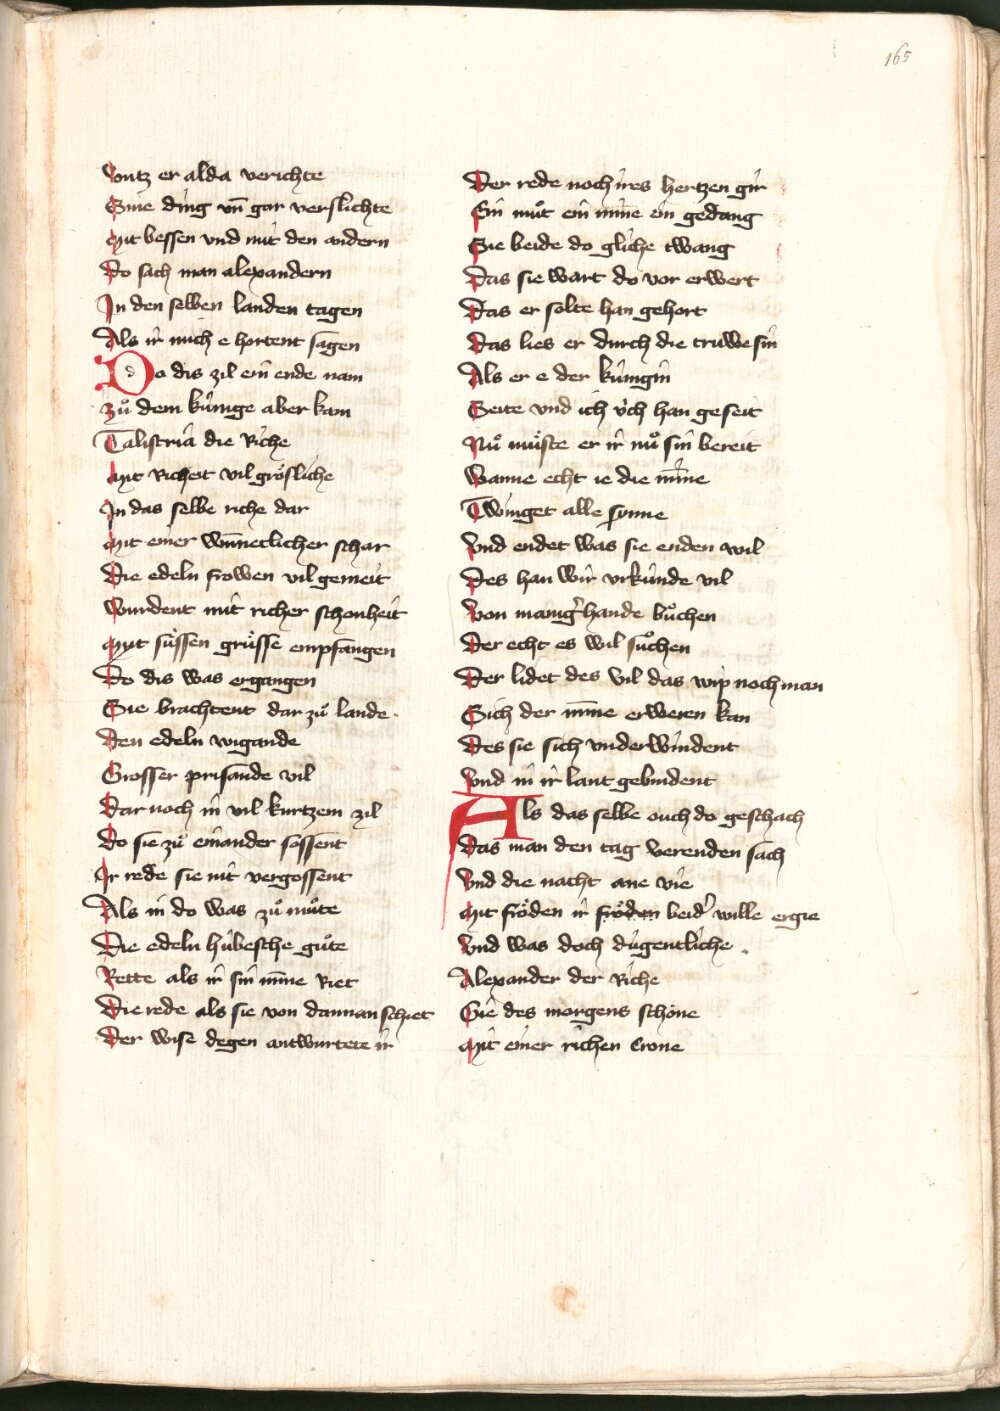 165
Vntz er alda verichte
Sine ding vn̄ gar verslichte
Mit bessen vnd mit den andern
Do sach man alexandern
In den selben landen tagen
Als ir mich e hortent sagen
Do dis zil ein ende nam
Zuͦ dem kúnige aber kam
Talistria die Riche
Mit Richeit vil grösliche
In das selbe riche dar
Mit einer wn̄neclicher schar
Die edeln frowen vil gemeit
Wurdent mit richer schonheit
Mit süssen grüsse empfangen
Do dis was ergangen
Sie brachtent dar zuͦ lande
Den edeln wigande
Grosser prisande vil
Dar noch in vil kurtzem zil
Do sie zuͦ einander sossent
Ir rede sie nit vergossent
Als in do was zuͦ muͦte
Die edeln húbesche guͦte
Rette als ir sin mīne Riet
Die rede als sie von dannan schiet
Der wise degen antwurtete ir
Der rede noch ires hertzen gir
Ein muͦt ein mīne ein gedang
Sie beide do gliche twang
Das sie wart do vor erwert
Das er solte han gehort
Das lies er durch die truwe sin
Als er e der kúnigin
Seite vnd ich v́ch han geseit
Nuͦ muͤste er ir nuͦ sin bereit
Wanne echt ie die mīne
Twinget alle synne
Vnd endet was sie enden wil
Des han wir vrkúnde vil
Von manigʾhande buͦchen
Der echt es wil suͦchen
Der lidet des vil das wip noch man
Sich der mīne erweren kan
Des sie sich vnderwindent
Vnd in ir lant gebindent
Als das selbe ouch do geschach
Das man den tag verenden sach
Vnd die nacht ane vie
Mit fröden ir fröden beidʾ wille ergie
Vnd was doch dugentliche
Alexander der Riche
Gie des morgens schöne
Mit einer richen Crone